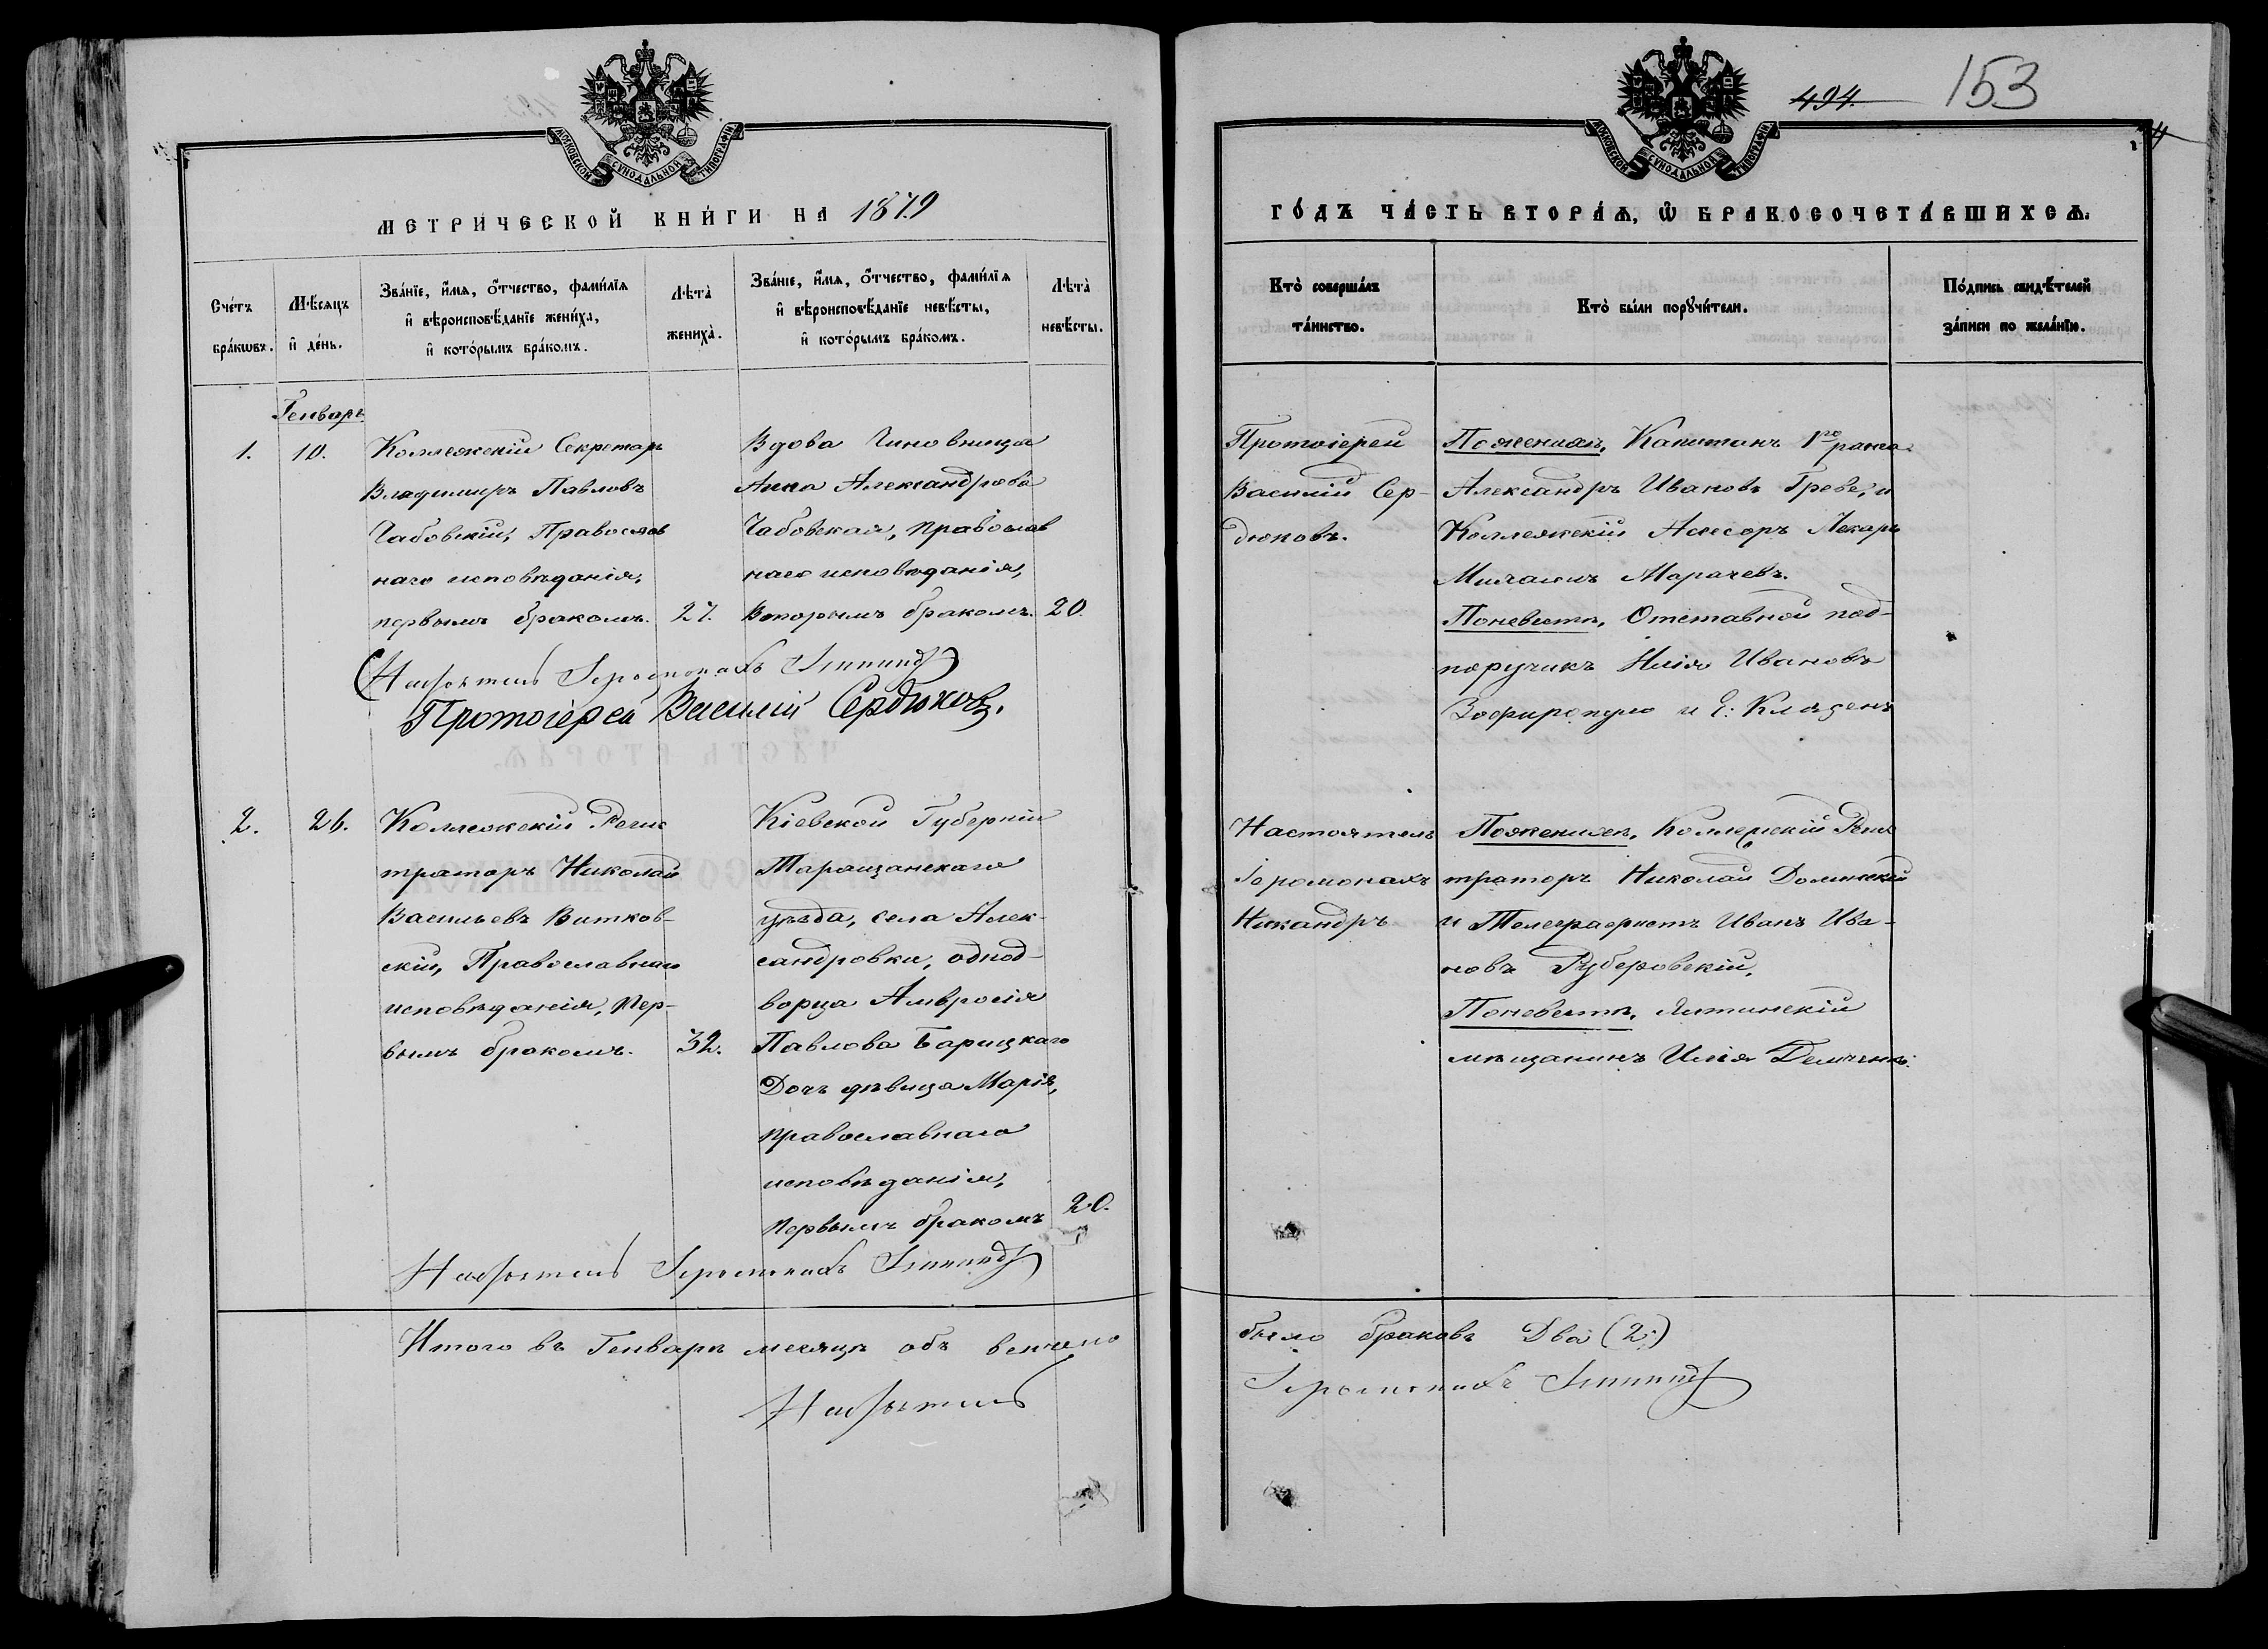 МОСКОВСКОЙ СѴНОДАЛЬНОЙ ТИПОГРАФІИ
МЕТРИЧЕСКОЙ КНИ́ГИ НА 1879
Сче́тъ бра́кѡвъ.
Мѣ́сяцъ и҆ де́нь.
Зва́нїе, и҆́мѧ, ѻ҆́тчество, фами́лїѧ
и҆ вѣроисповѣ́данїе жениха̀,
и҆ кото́рымъ бра́комъ.
Лѣта̀
жениха̀.
Зва́нїе, и҆́мѧ, ѻ҆́тчество, фами́лїѧ
и҆ вѣроисповѣ́данїе невѣ́сты,
и҆ кото́рымъ бра́комъ.
Лѣта̀
невѣ́сты.
Генварь
1.
10.
Коллежскій Секретарь
Владимиръ Павловъ
Чабовскій, Православ
наго исповѣданія,
первымъ бракомъ.
27.
Вдова Чиновница
Анна Александрова
Чабовская, православ
наго исповѣданія,
Вторымъ бракомъ.
20.
Настоятель Іеромонахъ
Протоіерей Василій Сердюковъ.
2.
26.
Коллежскій Регис
траторъ Николай
Васильевъ Витков-
скій, Православнаго
исповѣданія, Пер-
вымъ бракомъ.
32.
Кіевской Губерніи
Таращанскаго
уѣзда, села Алек-
сандровки, однод-
ворца Амвросія
Павлова Барицкаго
Дочь дѣвица Марія,
православнаго
исповѣданія,
Первымъ бракомъ
20.
Настоятель Іеромонахъ
Итого въ Генварѣ месяцѣ объ венчено
Настоятель
МОСКОВСКОЙ СѴНОДАЛЬНОЙ ТИПОГРАФІИ
494.
153
ГО́ДЪ ЧА́СТЬ ВТОРА́Ѧ, Ѡ҆ БРАКОСОЧЕТА́ВШИХСѦ.
Кто̀ соверша́лъ
та́инство.
Кто̀ бы́ли порꙋчи́тели.
По́дпись свидѣ́телей
за́писи по жела́нїю.
Протоіерей
Василій Сер-
дюковъ.
Поженихѣ, Капитанъ 1го ранга
Александръ Ивановъ Греве, и
Коллежскій Асесоръ Лекарь
Михаилъ Марачевъ.
Поневестѣ, Отставной под-
поручикъ Илія Ивановъ
Зафиропуло и Е: Кладенъ
Настоятель
Іеромонахъ
Никандръ
Поженихѣ, Коллежскій Регис
траторъ Николай Долинскій
и Телеграфистъ Иванъ Ива-
новъ Руберовскій,
Поневестѣ, Литинскій
мѣщанинъ Илія
было браковъ Два (2.)
Іеромонахъ